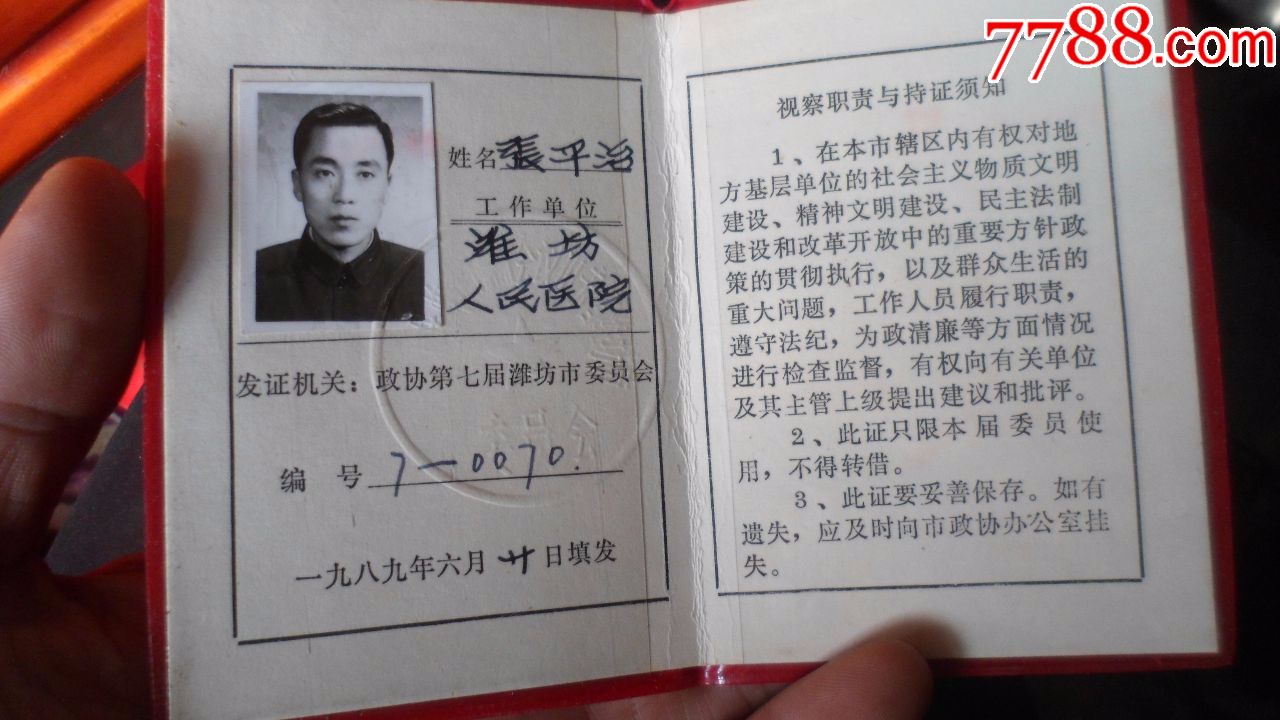 7788.com
姓名張平治
工作单位
潍坊
人民医院
发证机关：政协第七届潍坊市委员会
委员会
编 号 7-0070.
一九八九年六月廿日填发
视察职责与持证须知
1、在本市辖区内有权对地
方基层单位的社会主义物质文明
建设、精神文明建设、民主法制
建设和改革开放中的重要方针政
策的贯彻执行，以及群众生活的
重大问题，工作人员履行职责，
遵守法纪，为政清廉等方面情况
进行检查监督，有权向有关单位
及其主管上级提出建议和批评。
2、此证只限本届委员使
用，不得转借。
3、此证要妥善保存。如有
遗失，应及时向市政协办公室挂
失。